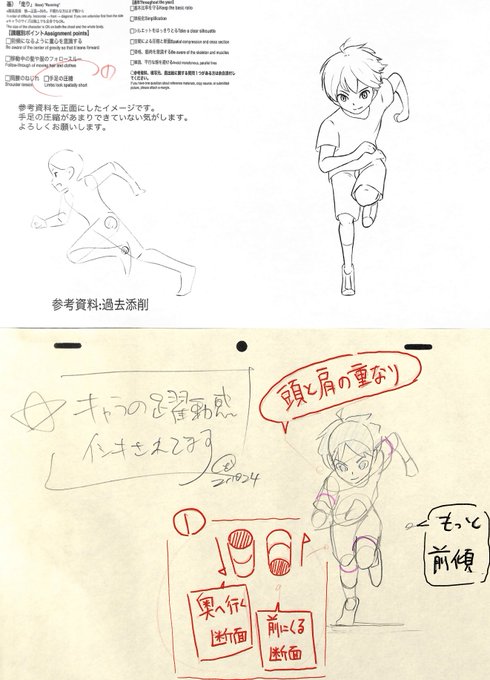 基)「走り」 Basic "Running"
【課題別ポイントAssignment points】
□前傾になるように重心を意識する
Be aware of the center of gravity so that it leans forward.
□移動中の髪や服のフォロースルー
Follow-through of moving hair and clothes
□両肩のねじれ
Shoulder torsion
□手足の圧縮
Limbs look spatially short
①
【通年Throughout the year】
□基本比率を守るKeep the basic ratio
□簡略化Simplification
□シルエットをはっきりとるTake a clear silhouette
□空間による圧縮と断面Spatial compression and cross section
□骨格、筋肉を意識するBe aware of the skeleton and muscles
参考資料を正面にしたイメージです。
手足の圧縮があまりできていない気がします。
よろしくお願いします。
参考資料:過去添削
☆キャラの躍動感
イシキされてます
頭と肩の重なり
①
奥へ行く
断面
前にくる
断面
もっと
前傾